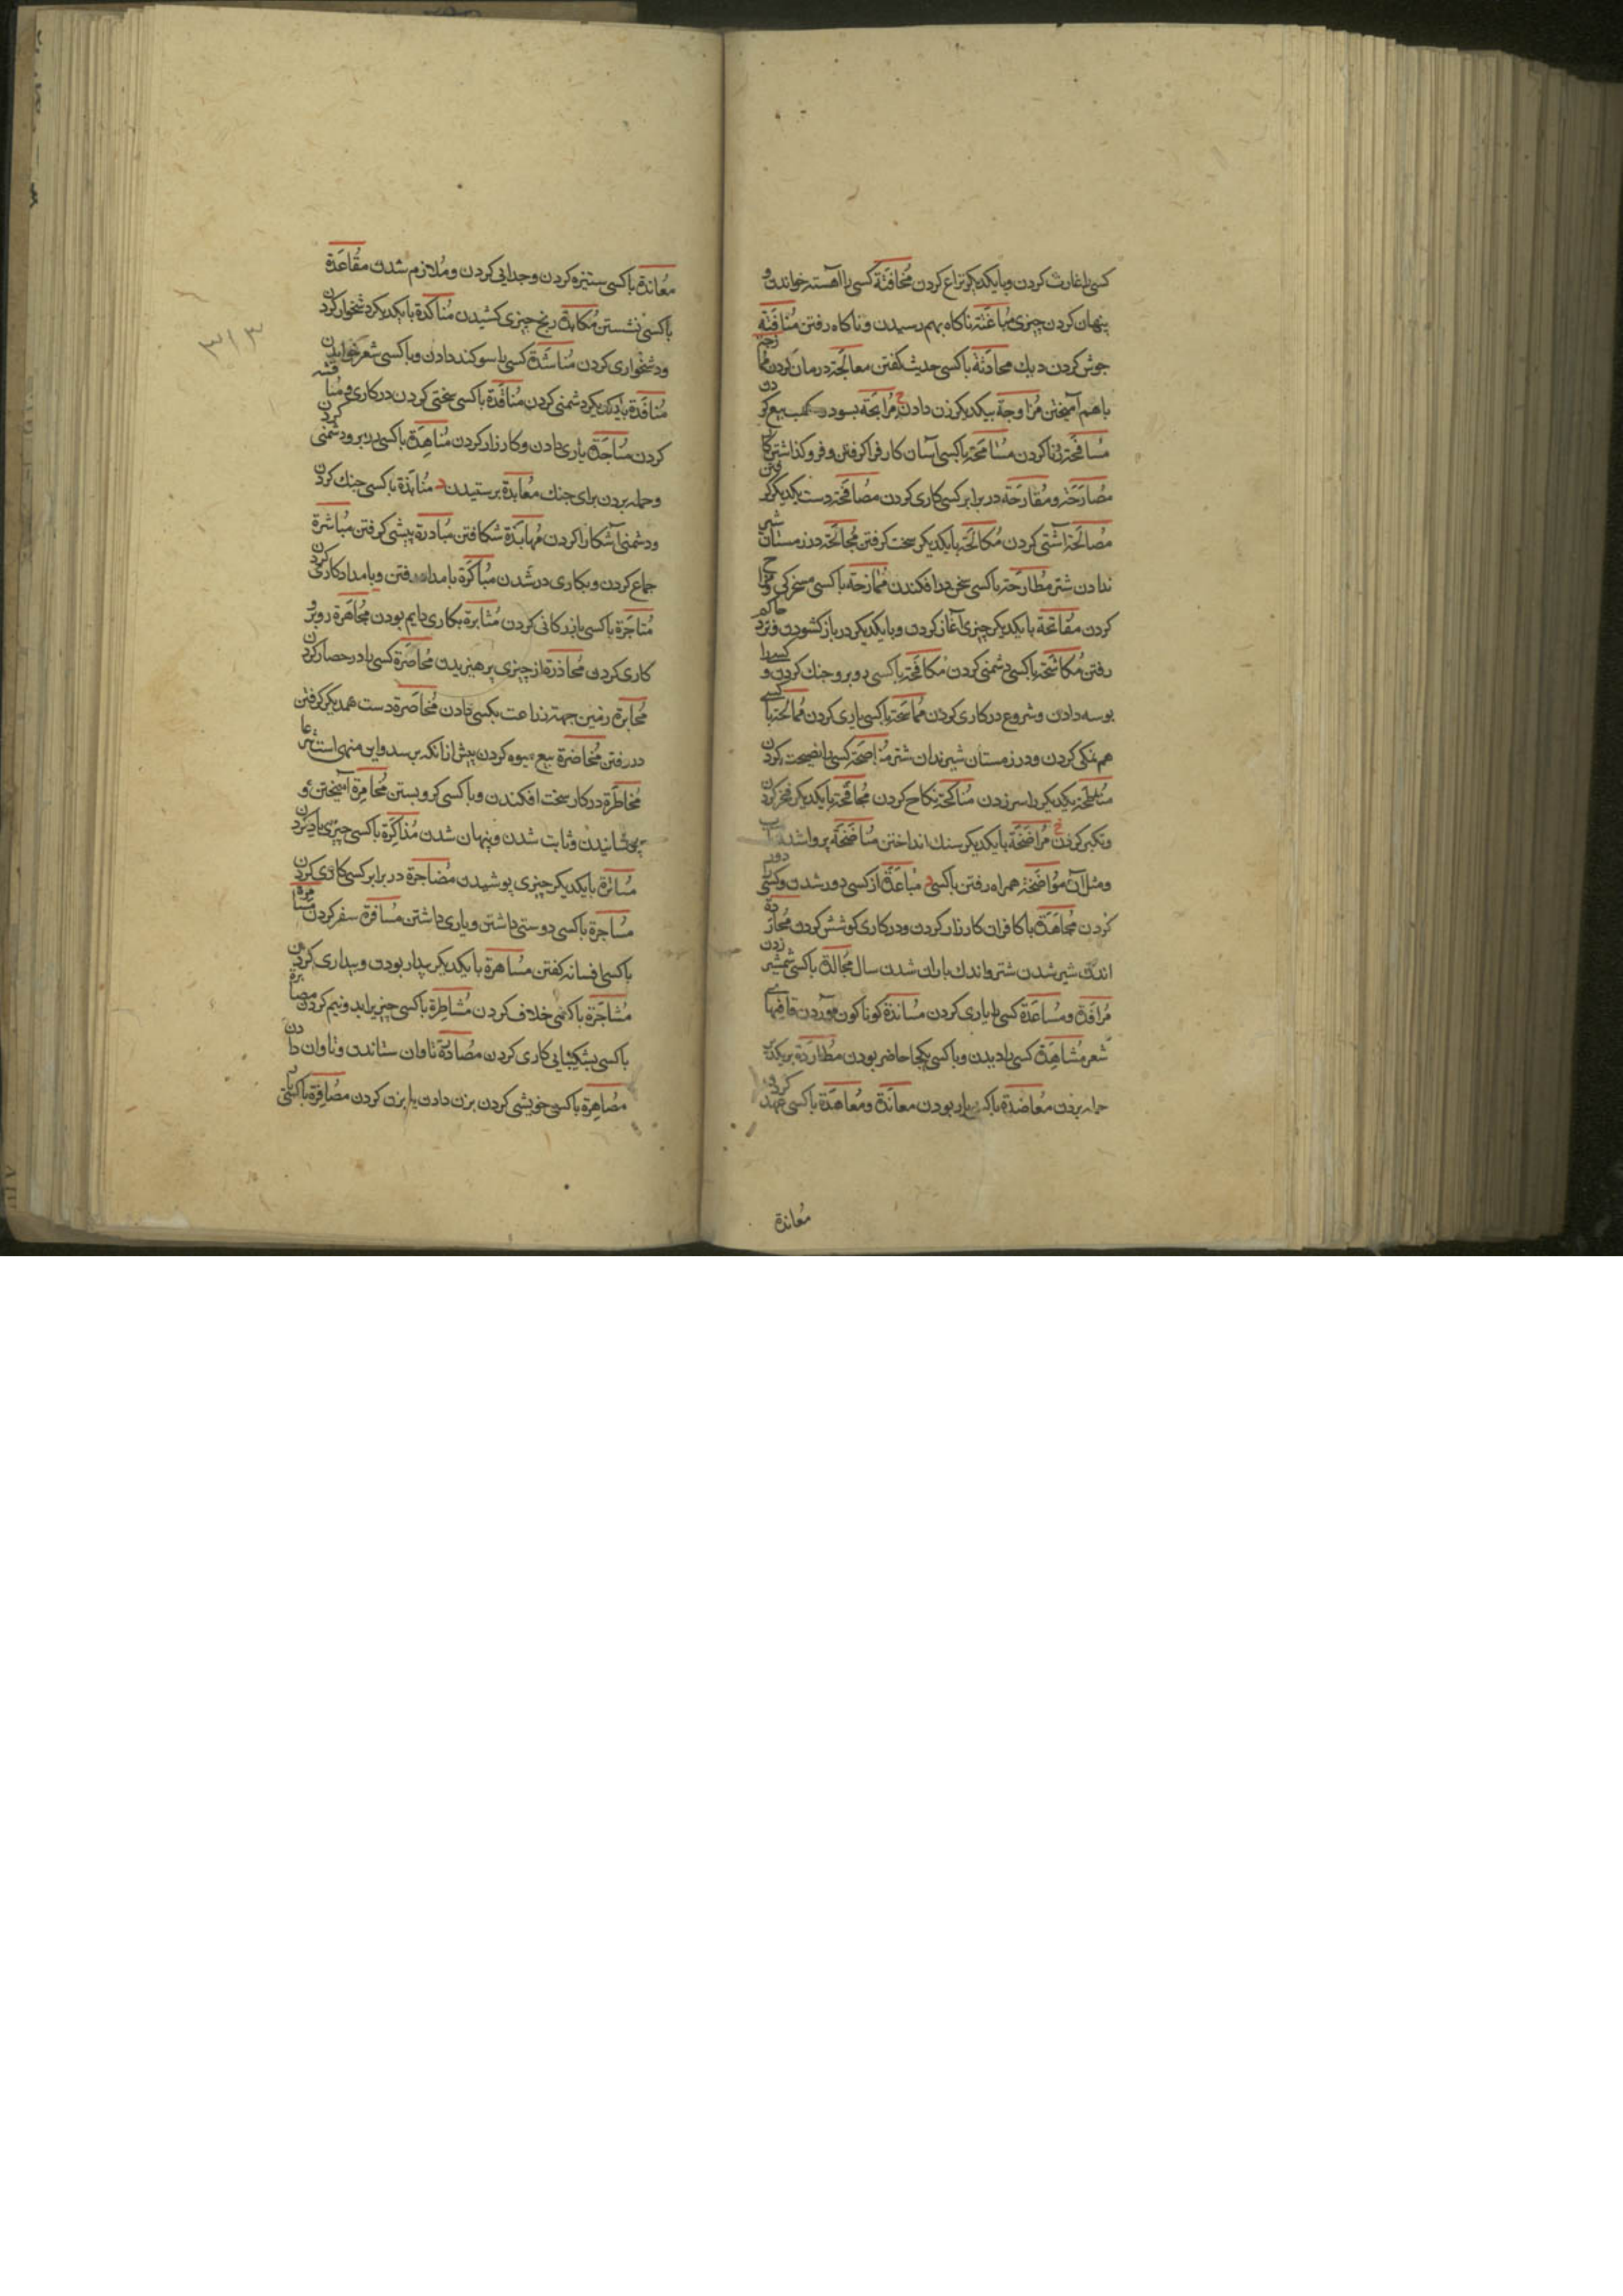 کسی را غارت کردن و بایکدیکر نزاع کردن مُخافَتَة کسی را آهسته خواندن و
پنهان کردن چیزی مُباغَتَة ناکاه بهم رسیدن و ناکاه رفتن مُنافَتَة
جوش کردن دیك محادَثَة باکسی حدیث کفتن معالَجَة درمان کردن مُما زجة
باهم آمیختن مُزاوجة بیکدیکر زن دادن ح مُرابَحَة بسود بیع کردن
مُسافَحَة زنا کردن مُسامَحَة باکسی آسان کار فرا کرفتن و فرو کذاشتن
مُصارَحَة و مُقارَحَة در برابر کسی کاری کردن مُصافَحَة دست یکدیکر کرفتن
مُصالَحَة آشتی کردن مُکالَحَة بایکدیکر سخت کرفتن مُجالَحَة در زمستان شیر
ندادن شتر مُطارَحَة باکسی سخن درافکندن مُمازحَة باکسی مسخرکی
کردن مُفاتَحَة بایکدیکر چیزی آغاز کردن و بایکدیکر در باز کشودن و نزد حاکم
رفتن مُکاشَحَة باکسی دشمنی کردن مُکافَحَة باکسی روبرو جنك کردن و کسیرا
بوسه دادن و شروع در کاری کردن مُماتَحَة باکسی یاری کردن مُمالَحَة با کسی
هم نمکی کردن و در زمستان شیر ندادن شتر مُناصَحَة کسی را نصیحت کردن
مُناطَحَة یکدیکر را سر زدن مُناکَحَة نکاح کردن مُجافَخَة بایکدیکر فخر کردن
و تکبر کردن خ مُراضَخَة بایکدیکر سنك انداختن مُناضَخَة
و مثل آن مُواضَخَة همراه رفتن باکسی د مُباعَدَة از کسی دور شدن و کسی را دور
کردن مُجاهَدَة با کافران کارزار کردن و در کاری کوشش کردن مُحارَدَة
اندك شیر شدن شتر و اندك باران شدن سال مُجالَدَة باکسی شمشیر زدن
مُرافَدَة و مُساعَدَة کسی را یاری کردن مُسانَدَة کوناکون آوردن قافیهای
شعر مُشاهَدَة کسی را دیدن و باکسی یکجا حاضر بودن مُطارَدَة بر یکدیکر
حمله بردن مُعاضَدَة باکسی یار بودن معانَدَة و مُعاهَدَة باکسی عهد کردن
معاندة
مُعانَدَة باکسی ستیزه کردن و جدایی کردن و مُلازم شدن مُقاعَدَة
باکسی نشستن مُکابَدَة رنج چیزی کشیدن مُناکَدَة بایکدیکر دشخوار کردن
و دشخواری کردن مُناشَدَة کسی را سوکند دادن و باکسی شعر خواندن
مُناقَدَة بایکدیکر دشمنی کردن مُنافَدَة باکسی سختی کردن در کاری و مُناقشه
کردن مُناجَدَة یاری دادن و کارزار کردن مُناهَدَة باکسی در برو دشمنی کردن
و حمله بردن برای جنك مُعابدة پرستیدن ذ مُنابَذَة باکسی جنك کردن
و دشمنی آشکارا کردن مُهابَذَة شکافتن مُبادرَة پیشی کرفتن مُباشَرَة
جماع کردن و بکاری در شدن مُباکَرَة بامداد رفتن و بامداد کاری کردن
مُتاجَرَة باکسی بازرکانی کردن مُثابرَة بکاری دایم بودن مُجاهَرَة روبرو
کاری کردن مُحاذَرَة از چیزی پرهیزیدن مُحاصَرَة کسی را در حصار کردن
مُخابرَة زمین جهت زراعت بکسی دادن مُخاصَرَة دست همدیکر کرفتن
در رفتن مُخاضَرَة بیع میوه کردن پیش از آنکه برسد و این منهی است شرعا
مُخاطَرَة در کار سخت افکندن و باکسی کرو بستن مُخامِرَة آمیختن و
پوشانیدن و ثابت شدن و پنهان شدن مُذاکَرَة باکسی چیزی یاد کردن
مُساتَرَة بایکدیکر چیزی پوشیدن مُضاجرَة در برابر کسی کاری کردن
مُساجرَة باکسی دوستی داشتن و یاری داشتن مُسافَرَة سفر کردن مُسامرة
باکسی افسانه کفتن مُساهَرَة بایکدیکر بیدار بودن و بیداری کردن
مُشاجَرَة باکسی خلاف کردن مُشاطِرَة باکسی چیزی را بدو نیم کردن مصابرة
باکسی بشکیبایی کاری کردن مُصادَرَة تاوان ستاندن و تاوان دادن
مُصاهَرَة باکسی خویشی کردن بزن دادن یا بزن کردن مُصافِرَة
۳۱۳